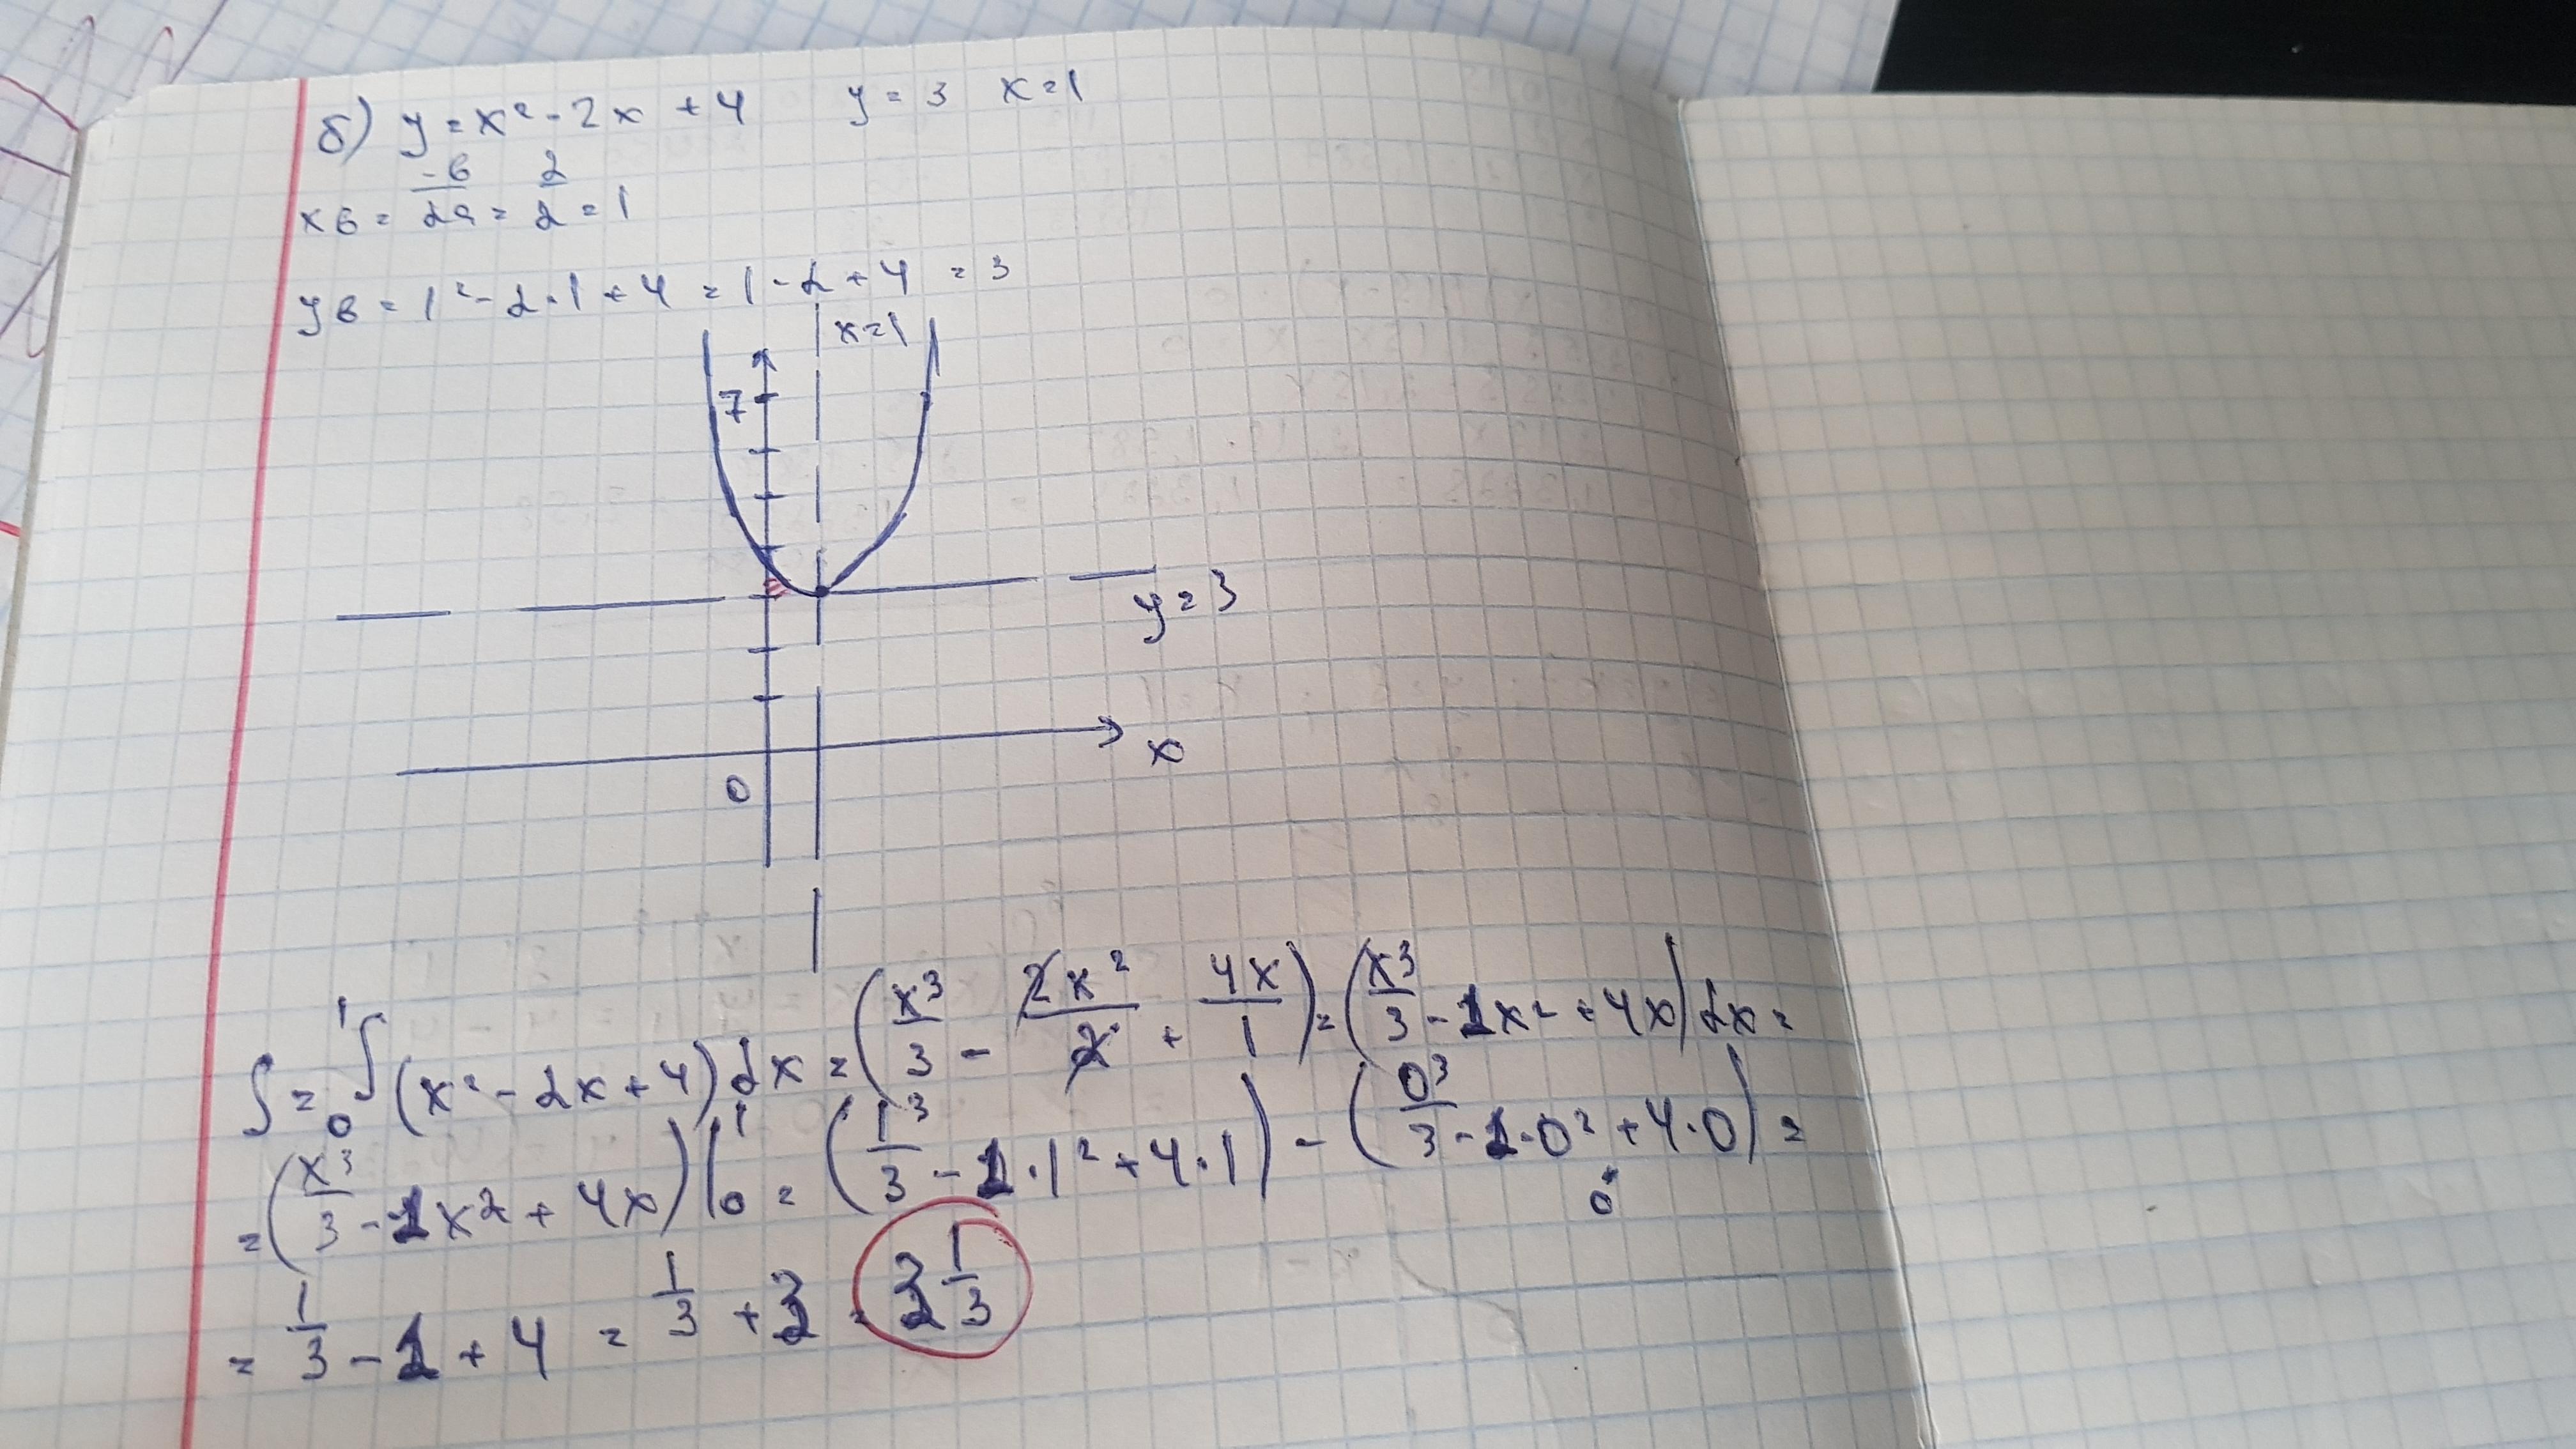 б) y = x² - 2x + 4 y = 3 x = 1
xв = -в/2a = 2/2 = 1
yв = 1² - 2·1 + 4 = 1 - 2 + 4 = 3
x=1
7
y = 3
x
0
S = ₀∫¹ (x² - 2x + 4) dx = (x³/3 - 2x²/2 + 4x/1) = (x³/3 - 1x² + 4x) dx =
= (x³/3 - 1x² + 4x) |₀¹ = (1³/3 - 1·1² + 4·1) - (0³/3 - 1·0² + 4·0) =
0
= 1/3 - 1 + 4 = 1/3 + 3 = 3 1/3